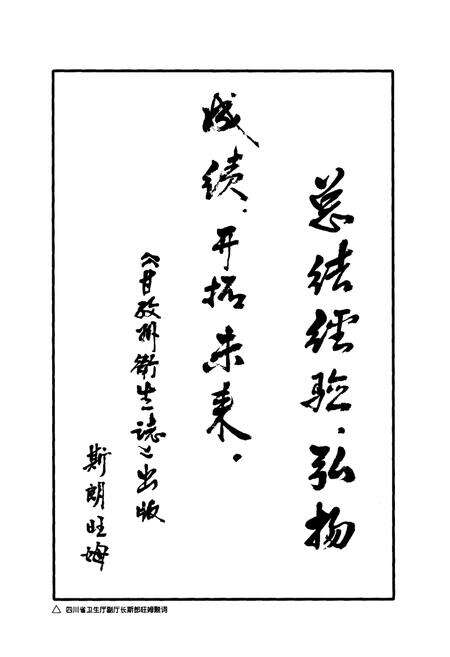 总结经验.弘扬
成绩.开拓未来.
《甘孜州衛生誌》出版
斯朗旺姆
△ 四川省卫生厅副厅长斯郎旺姆题词